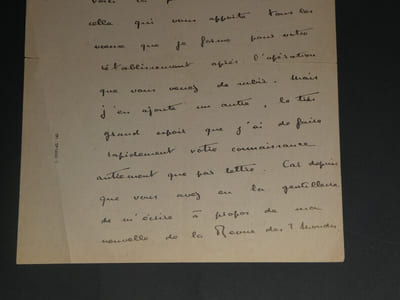 celle qui vous apporte tous les
vœux que je forme pour votre
rétablissement après l'opération
que vous venez de subir. Mais
j'en ajoute un autre, le très
grand espoir que j'ai de faire
rapidement votre connaissance
autrement que par lettre. Car depuis
que vous avez eu la gentillesse
de m'écrire à propos de ma
nouvelle de la Revue des 2 Mondes